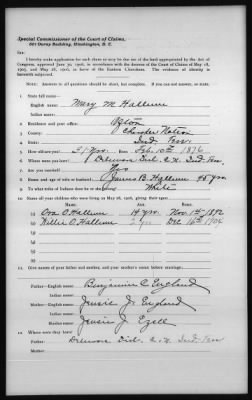 Special Commissioner of the Court of Claims,
601 Ouray Building, Washington, D. C.
Sir:
I hereby make application for such share as may be due me of the fund appropriated by the Act of
Congress, approved June 30, 1906, in accordance with the decrees of the Court of Claims of May 18,
1905, and May 28, 1906, in favor of the Eastern Cherokees. The evidence of identity is
herewith subjoined.
NOTE: Answers to all questions should be short, but complete. If you can not answer, so state.
1. State full name—
English name: Mary M. Hallum
Indian name:
2. Residence and post office:
3. County: Cherokee Nation
4. State: Ind. Terr.
5. How old are you? 29 yrs. Born Feb. 10th 1876
6. Where were you born? Delaware Dist. C. N. Ind. Ter.
7. Are you married? Yes
8. Name and age of wife or husband: James B. Hallum 45 yrs.
9. To what tribe of Indians does he or she belong? White
10. Name all your children who were living on May 28, 1906, giving their ages:
(1) Ora O. Hallum 14 yrs. Nov. 1st 1892
(2) Willie O. Hallum 2 yrs Dec 16th 1904
11. Give names of your father and mother, and your mother's name before marriage.
Father—English name: Benjamin C. England
Indian name:
Mother—English name: Jensie J. England
Indian name:
Maiden name: Jensie J. Ezell
12. Where were they born?
Father: Delaware Dist. C. N. Ind. Terr
Mother: